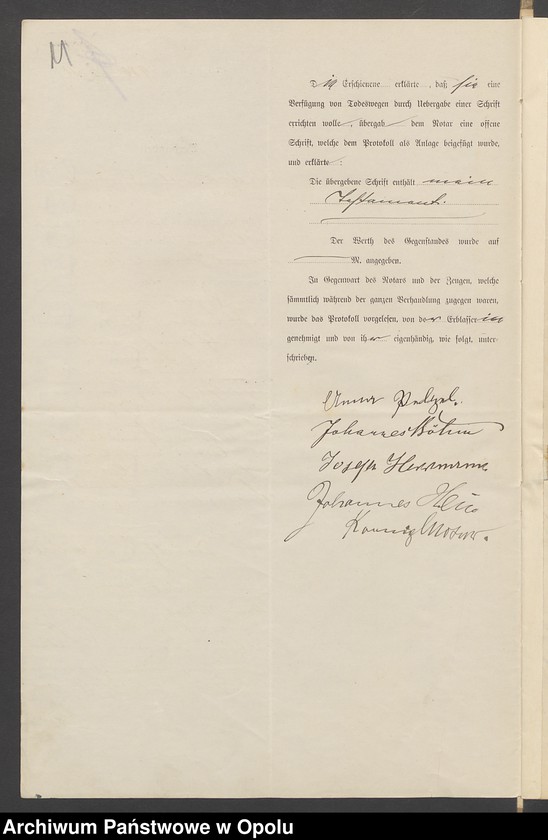 M
Die Erschienene erklärte, daß sie eine
Verfügung von Todeswegen durch Uebergabe einer Schrift
errichten wolle, übergab dem Notar eine offene
Schrift, welche dem Protokoll als Anlage beigefügt wurde,
und erklärte:
Die übergebene Schrift enthält mein
Testament.
Der Werth des Gegenstandes wurde auf
M. angegeben.
In Gegenwart des Notars und der Zeugen, welche
sämmtlich während der ganzen Verhandlung zugegen waren,
wurde das Protokoll vorgelesen, von der Erblasserin
genehmigt und von ihr eigenhändig, wie folgt, unter-
schrieben.
Anna
Johannes Böhm
Joseph Herrmann
Johannes
Koenigl Notar.
Archiwum Państwowe w Opolu